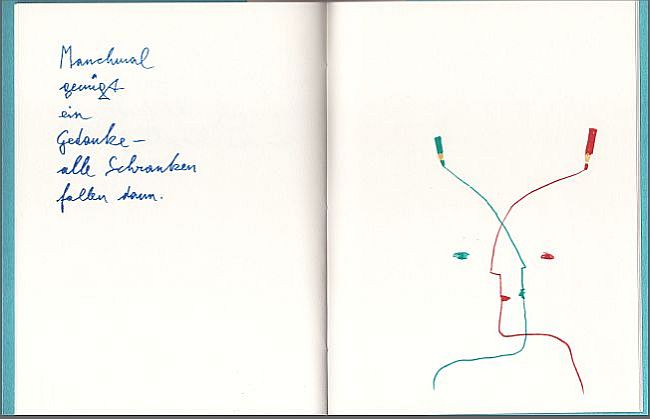 Manchmal
genügt
ein
Gedanke –
alle Schranken
fallen dann.